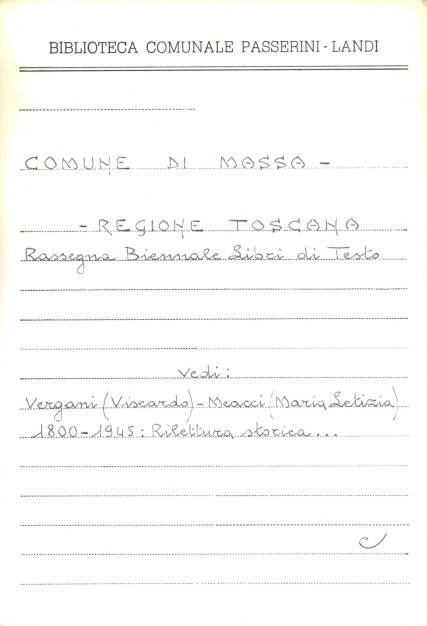 BIBLIOTECA COMUNALE PASSERINI - LANDI
COMUNE DI MASSA -
- REGIONE TOSCANA
Rassegna Biennale Libri di Testo
vedi:
Vergani (Viscardo) - Meacci (Maria Letizia)
1800-1945: Rilettura storica...